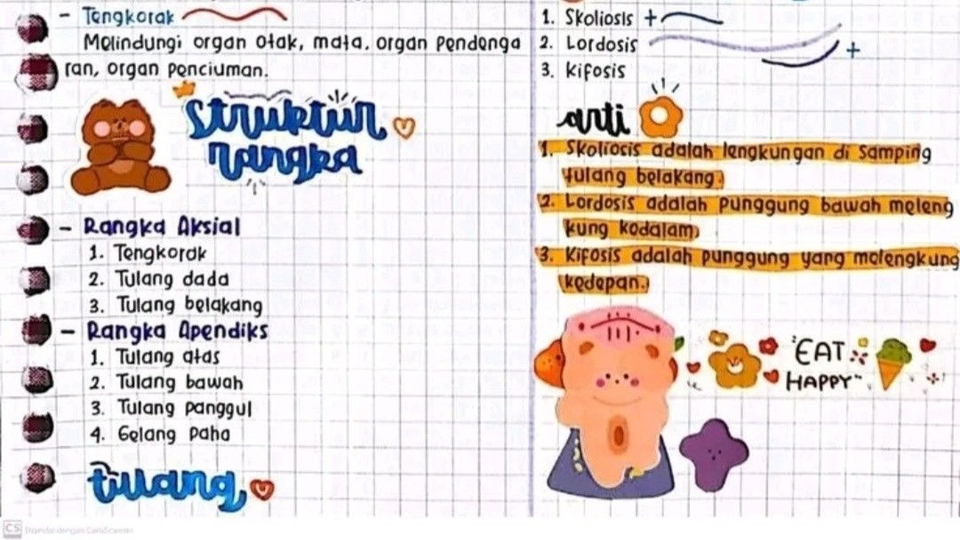 - Tengkorak
Melindungi organ otak, mata, organ pendenga
ran, organ penciuman.
struktur
rangka
- Rangka Aksial
1. Tengkorak
2. Tulang dada
3. Tulang belakang
- Rangka Apendiks
1. Tulang atas
2. Tulang bawah
3. Tulang panggul
4. Gelang paha
tulang
1. Skoliosis +
2. Lordosis +
3. Kifosis
arti
1. Skoliosis adalah lengkungan di samping
tulang belakang.
2. Lordosis adalah punggung bawah meleng
kung kedalam
3. Kifosis adalah punggung yang melengkung
kedepan.
"EAT
HAPPY"
CS Dipindai dengan CamScanner